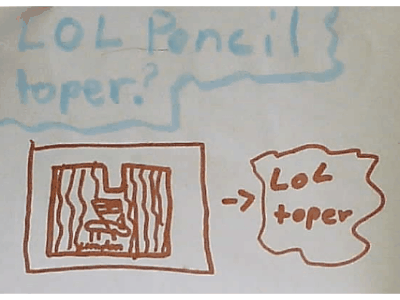 LOL Pencil
toper?
LOL
toper